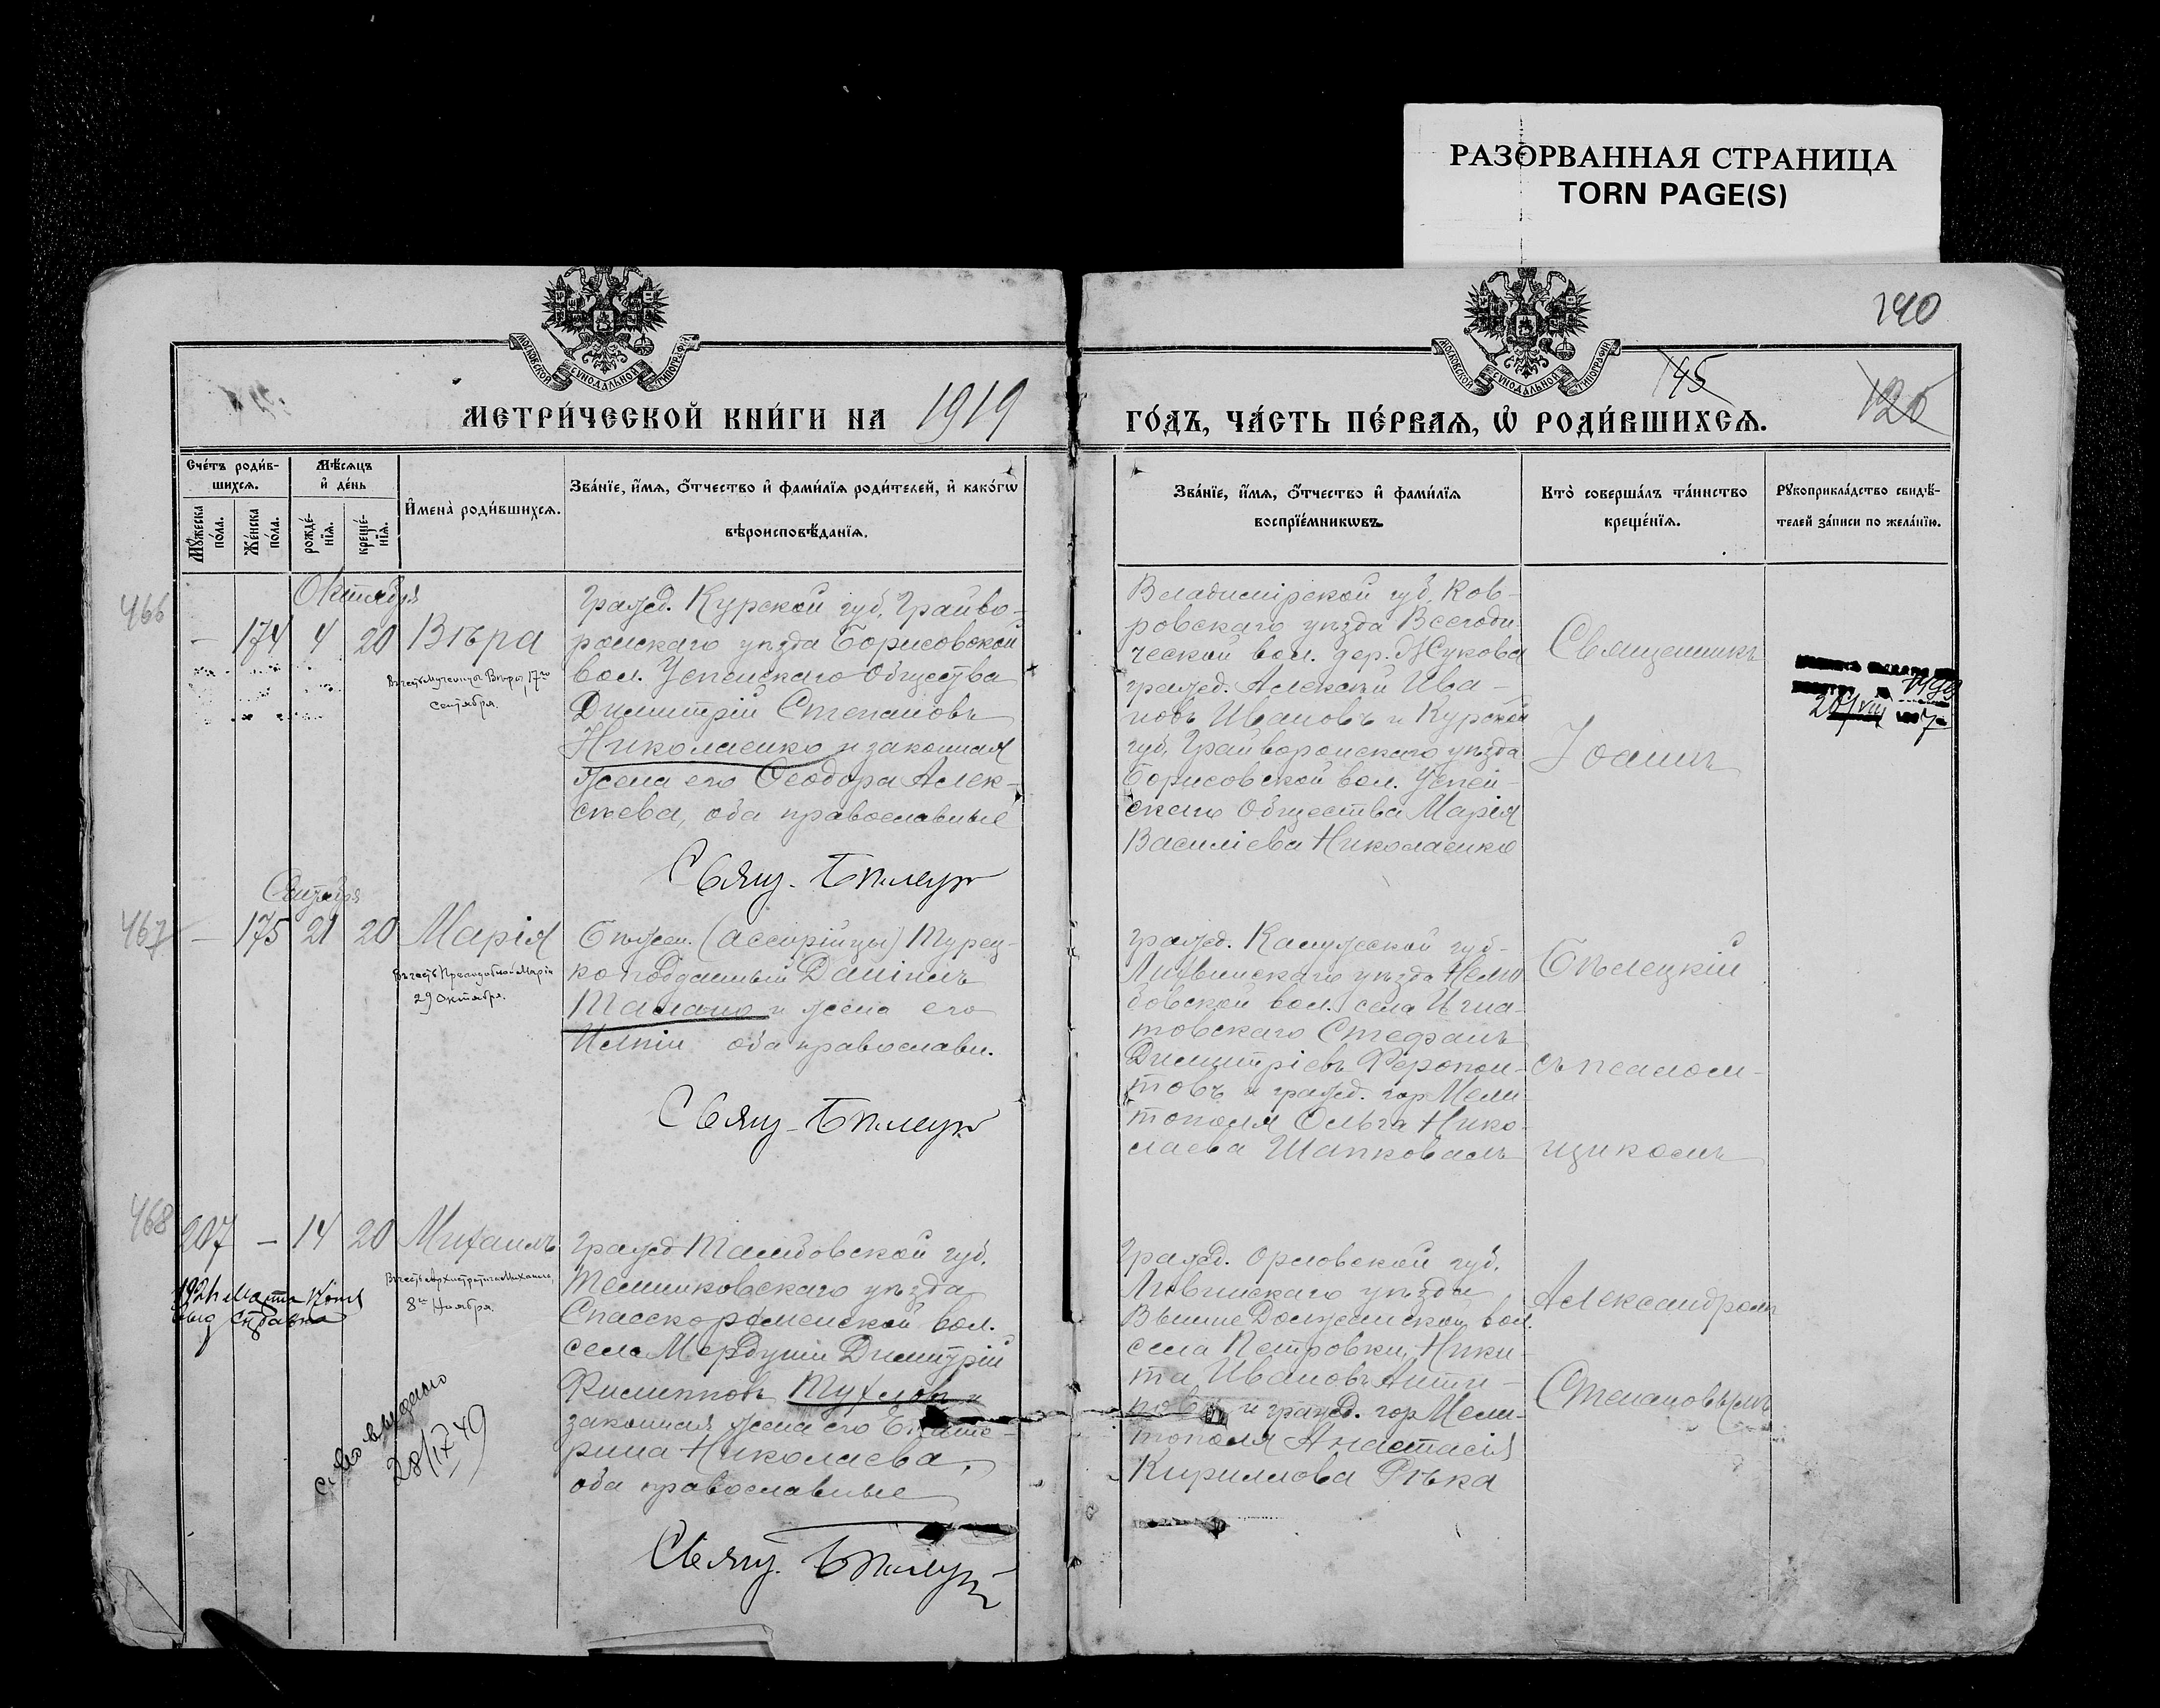 РАЗОРВАННАЯ СТРАНИЦА
TORN PAGE(S)
140
145
126
МОСКОВСКОЙ СѴНОДАЛЬНОЙ ТИПОГРАФІИ
МОСКОВСКОЙ СѴНОДАЛЬНОЙ ТИПОГРАФІИ
МЕТРИ́ЧЕСКОЙ КНИ́ГИ НА 1919
ГО́ДЪ, ЧА́СТЬ ПЕ́РВАѦ, Ѡ҆ РОДИ́ВШИХСѦ.
Сче́тъ роди́в-
шихсѧ.
Мѣ́сѧцъ
и҆ де́нь
Мꙋ́жеска по́ла.
Же́нска по́ла.
рожде́-
нїѧ.
креще́-
нїѧ.
И҆мена̀ роди́вшихсѧ.
Зва́нїе, и҆́мѧ, ѻ҆́тчество и҆ фами́лїѧ роди́телей, и҆ како́гѡ
вѣроисповѣ́данїѧ.
Зва́нїе, и҆́мѧ, ѻ҆́тчество и҆ фами́лїѧ
воспрїе́мникѡвъ.
Кто̀ соверша́лъ та́инство
креще́нїѧ.
Рꙋкоприкла́дство свидѣ́-
телей за́писи по жела́нїю.
466
Октября
— 174 4 20 Вѣра
въ честь Мученицы Вѣры, 17го
сентября.
Гражд. Курской губ. Грайво-
ронскаго уѣзда Борисовской
вол. Успенскаго Общества
Димитрій Стефановъ
Николаенко и законная
жена его Ѳеодора Алек-
сѣева, оба православные
Свящ. Бѣлецкій
Владимірской губ. Ков-
ровскаго уѣзда Всегоди-
ческой вол. дер. Жукова
гражд. Алексѣй Ива-
новъ Ивановъ и Курской
губ. Грайворонскаго уѣзда
Борисовской вол. Успен-
скаго Общества Марія
Василіева Николаенко
Священникъ
Іоаннъ
467
Сентября
— 175 21 20 Марія
въ честь Преподобной Маріи
29 Октября.
Бѣжен. (ассирійцы) Турец-
ко подданный Даніилъ
и жена его
оба православн.
Свящ. Бѣлецкій
Гражд. Калужской губ.
Лихвинскаго уѣзда
бовской вол. села Игна-
товскаго Стефанъ
Димитріевъ Ферапон-
товъ и гражд. гор Мели-
тополя Ольга Нико-
лаева Шаповалъ
Бѣлецкій
съ псалом-
щикомъ
468
207 — 14 20 Михаилъ
въ честь Архистратига Михаила,
8го Ноября.
Гражд Тамбовской губ.
Темниковскаго уѣзда
вол.
села Мердуши Димитрій
Филипповъ Тухловъ и
законная жена его Екате-
рина Николаева,
оба православные
Свящ. Бѣлецкій
28/IX 49
Гражд. Орловской губ.
Ливенскаго уѣзда
Вышне Должанской вол.
села Петровки, Ники-
та Ивановъ Анти-
повъ и гражд. гор Мели-
тополя Анастасія
Кириллова Рѣка
Александромъ
Степановымъ